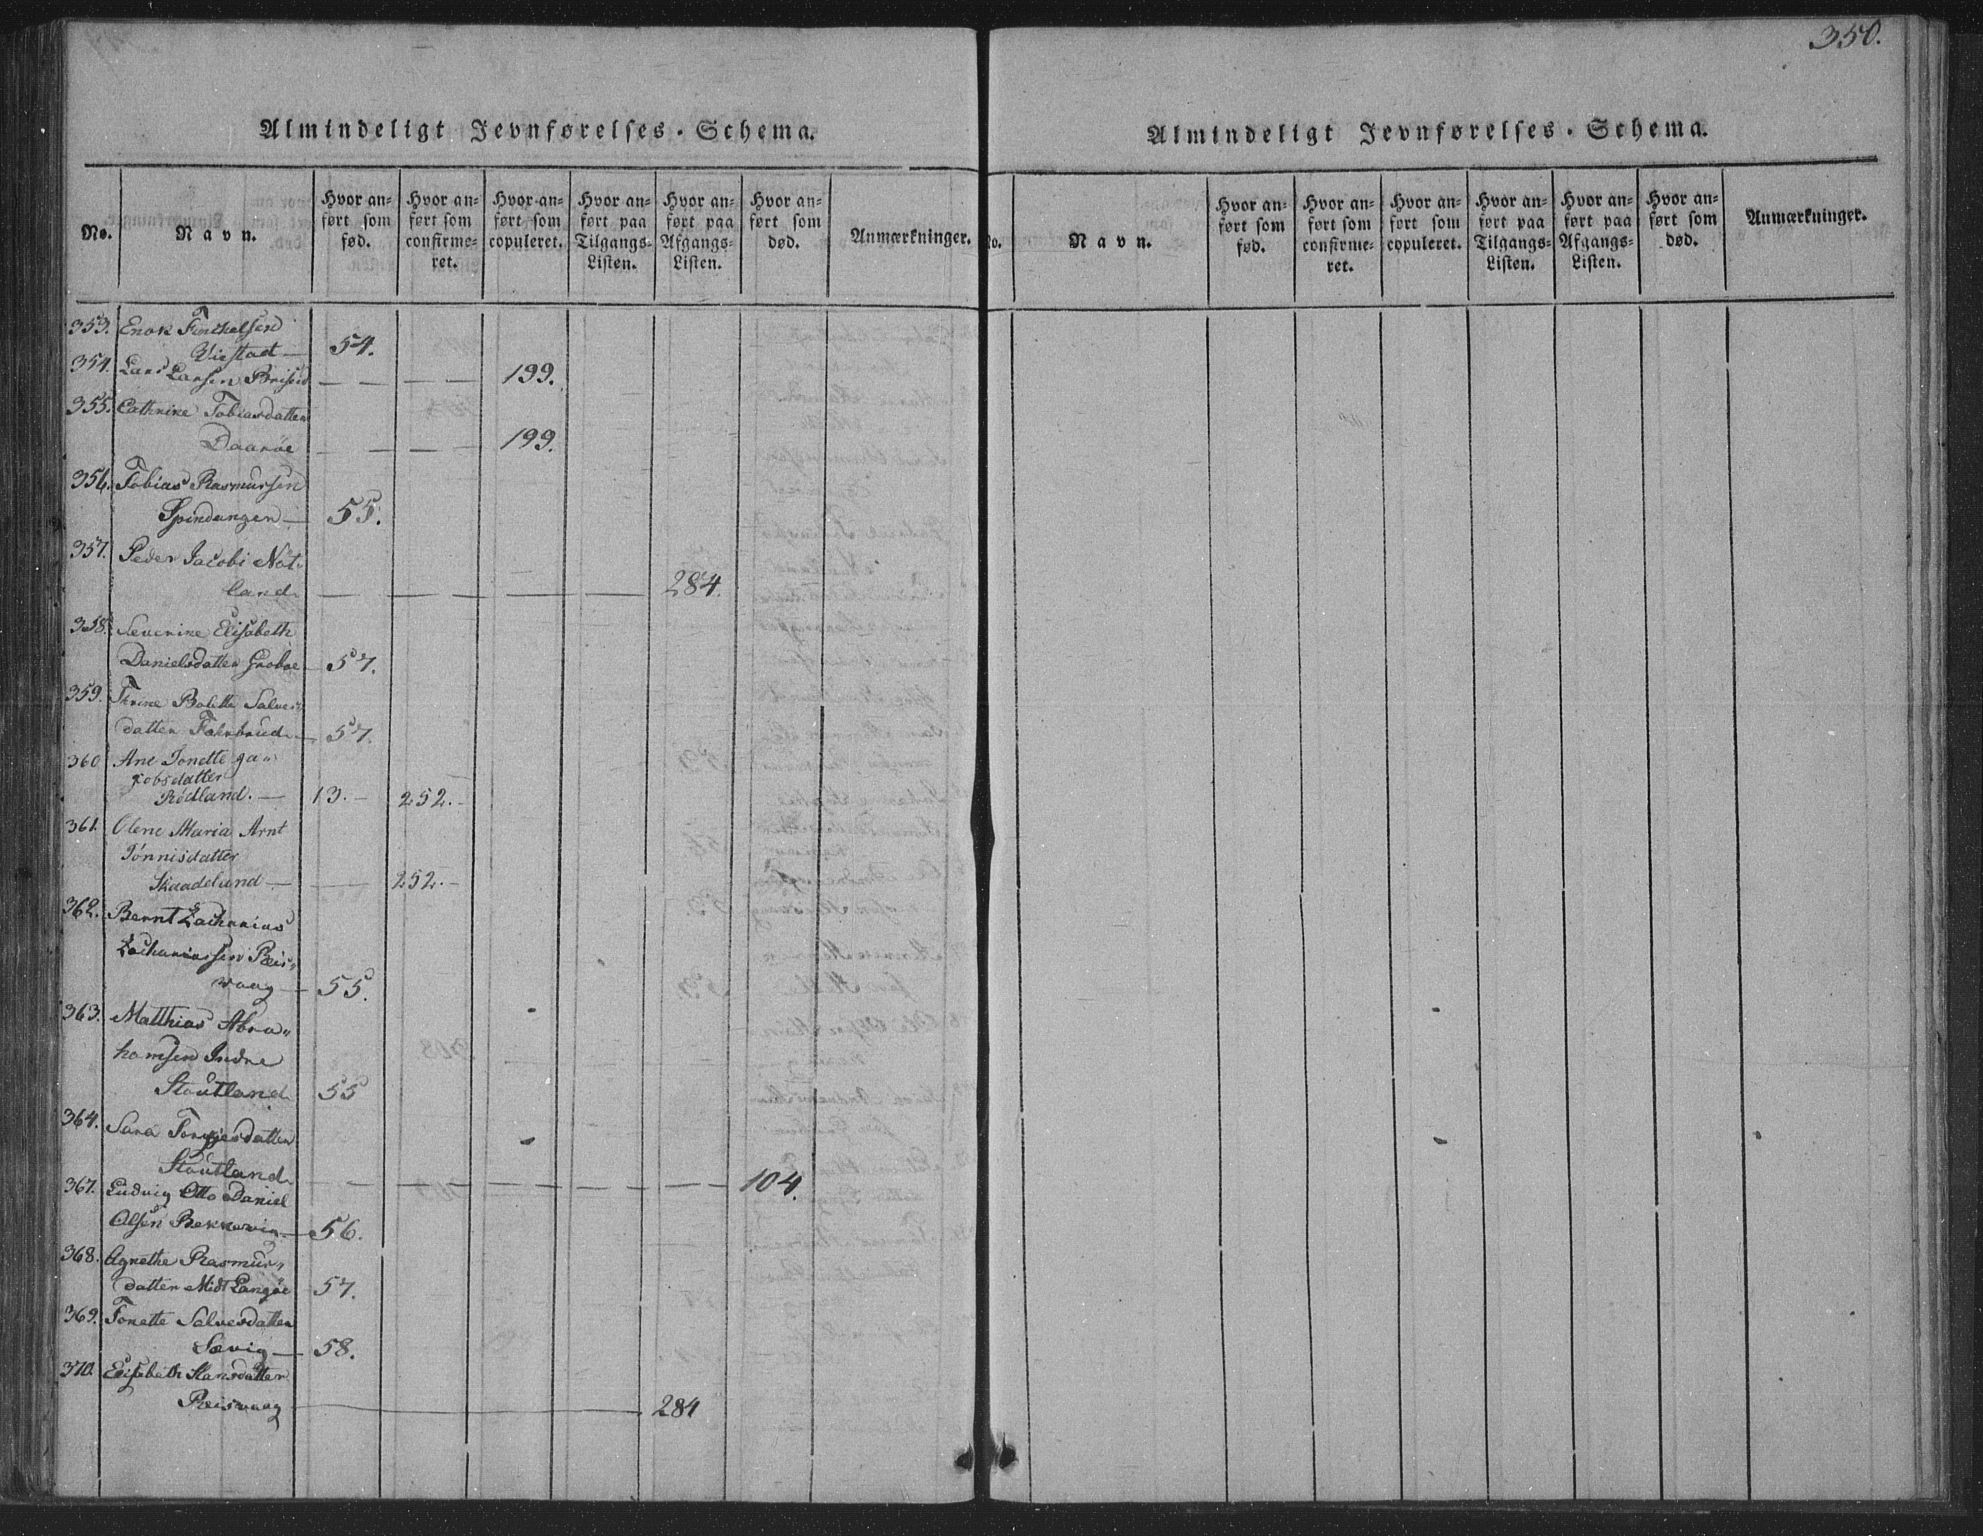 350.
Almindeligt Jevnførelses-Schema.
No.
Navn.
Hvor anført som fød.
Hvor anført som confirmeret.
Hvor anført som copuleret.
Hvor anført paa Tilgangs-Listen.
Hvor anført paa Afgangs-Listen.
Hvor anført som død.
Anmærkninger.
353. Enok
54.
354. Lars Larsen
— — 199.
355. Cathrine Tobiasdatter
Daarøe — — — 199.
356. Tobias Rasmussen
Spindangen — 55.
357. Peder Jacobi Nøt-
land — — — — — 284.
358. Severine Elisabeth
Danielsdatter — 57.
359. Thrine Bolette Salves-
datter — 57.
360 Ane Tonette Ja-
kobsdatter
Rødland. — 13. — 252. —
361. Olene Maria Arnt
Tönnisdatter
Skaadelund — — 252. —
362. Bernt Zacharias
Zachariassen Reis-
vaag — 55.
363. Matthias Abra-
hamsen Indre
Stoutland 55
364. Sara Torgjesdatter
Stoutland — — — — — — 104.
367. Ludvig Otto Daniel
Olsen Rekkevig — 56.
368. Agnethe Rasmus-
datter Midt Langøe 57.
369. Tonette Salvesdatter
Sævig — 58.
370. Elisabeth Hansdatter
Reisvaag — 284
Almindeligt Jevnførelses-Schema.
No.
Navn.
Hvor anført som fød.
Hvor anført som confirmeret.
Hvor anført som copuleret.
Hvor anført paa Tilgangs-Listen.
Hvor anført paa Afgangs-Listen.
Hvor anført som død.
Anmærkninger.